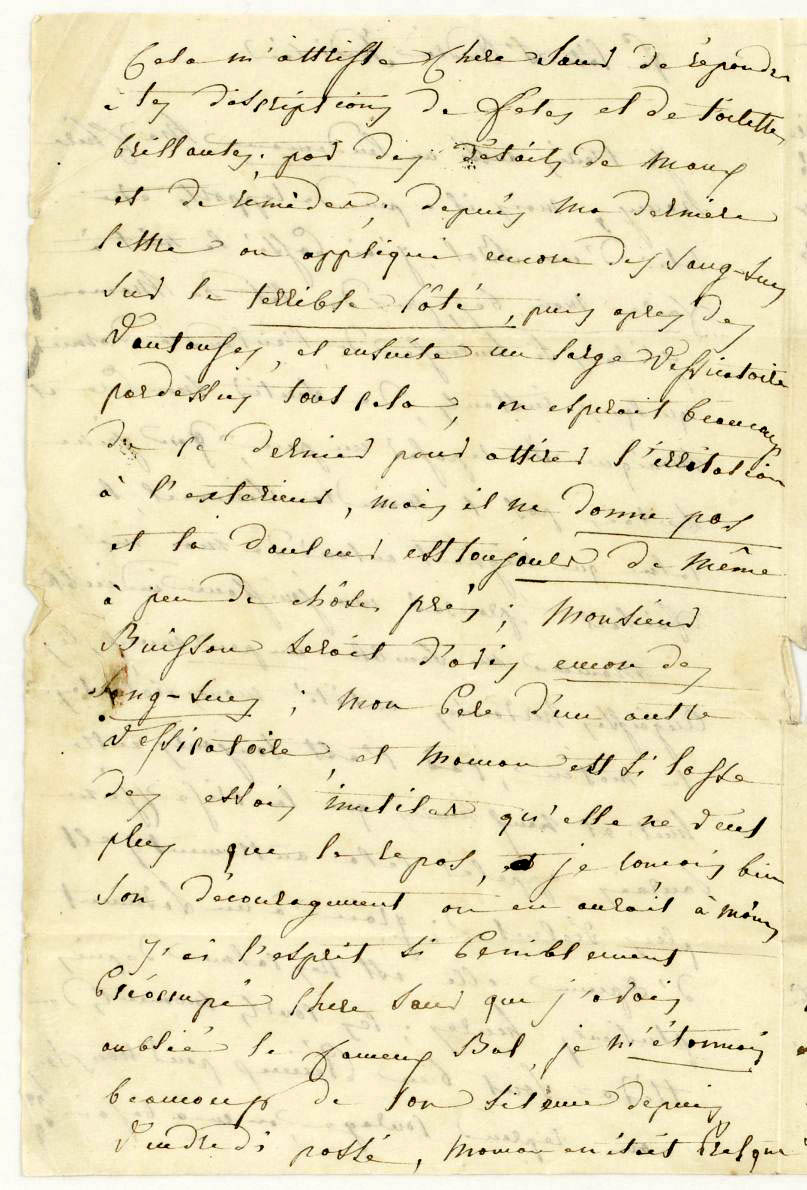 Cela m'attriste Chere Soeur de répondre
à tes descriptions de fetes et de toilettes
brillantes, par des détails de maux
et de remèdes; depuis ma derniere
lettre on appliqué encore des sang-sues
sur le terrible côté, puis apres des
Vantouses, et ensuite un large Vessicatoire
pardessus tout cela, on esperait beaucoup
de ce dernier pour attirer l'irritation
à l'exterieur, mais il ne donne pas
et la douleur est toujours de même
à peu de chôse près; Monsieur
Buisson serait d'avis encore des
Sang-sues; mon Pere d'un autre
Vessicatoire, et Maman est si lasse
des essais inutiles qu'elle ne veut
plus que le repos, je conçois bien
son découragement on en aurait à moins
J'ai l'esprit si Peniblement
Préocupé chere soeur que j'avais
oublié le fameux Bal, je m'étonnais
beaucoup de ton silence depuis
Vendredi passé, Maman en était Presque